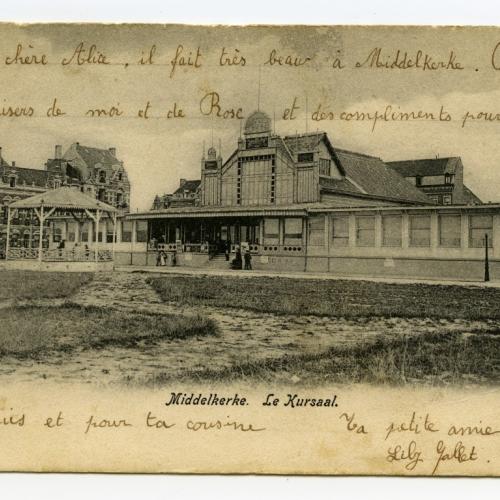 chère Alice, il fait très beau à Middelkerke.
baisers de moi et de Rose et des compliments pour
Middelkerke. Le Kursaal.
et pour ta cousine
Ta petite amie